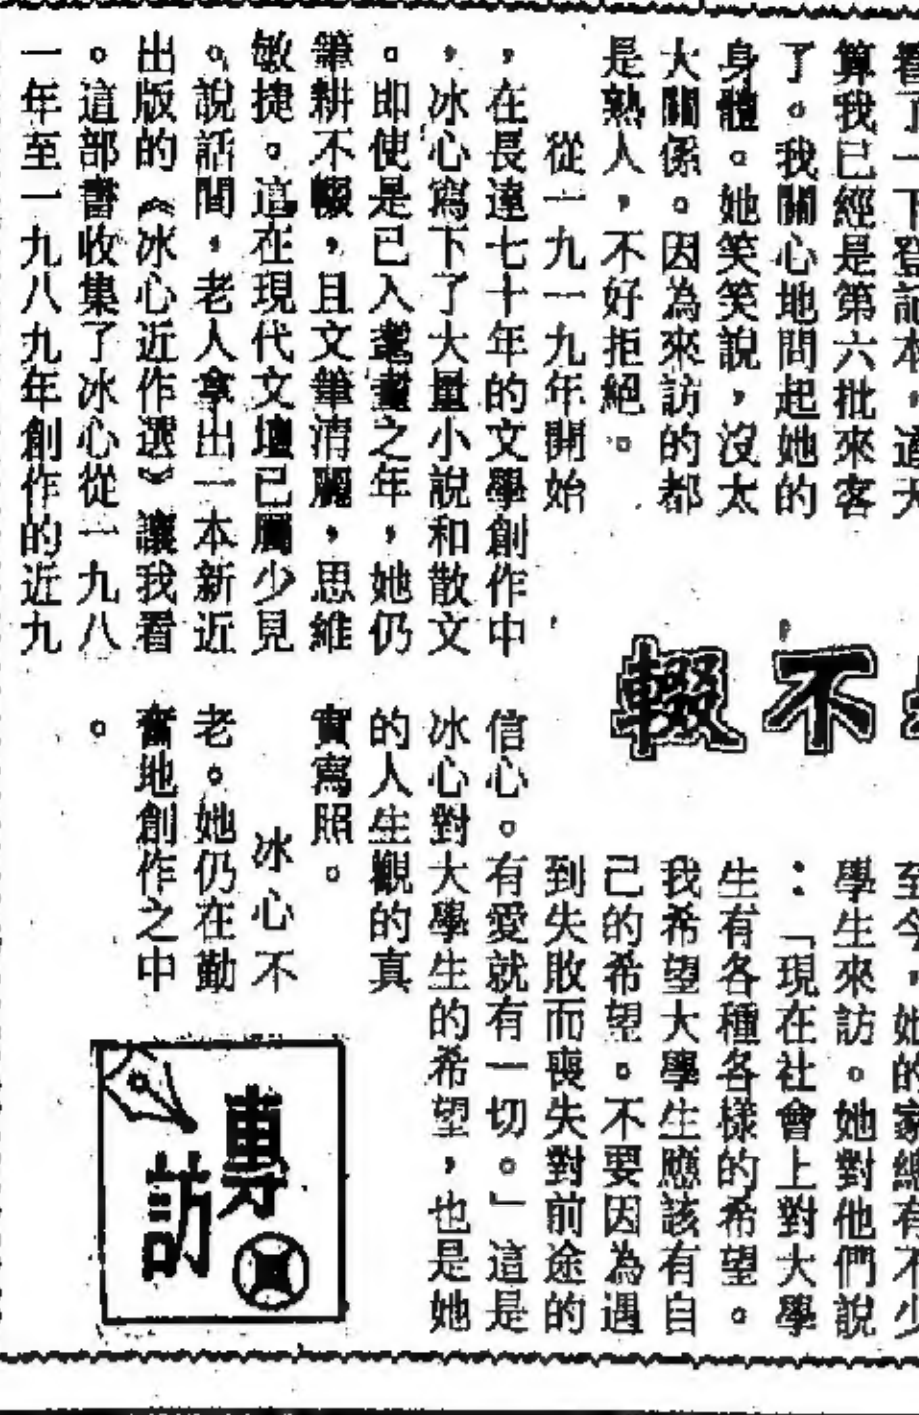 看了一下登記本，這天
算我已經是第六批來客
了。我關心地問起她的
身體。她笑笑說，沒太
大關係。因為來訪的都
是熟人，不好拒絕。
從一九一九年開始
，在長達七十年的文學創作中
，冰心寫下了大量小說和散文
。即使是已入耄耋之年，她仍
筆耕不輟，且文筆清麗，思維
敏捷。這在現代文壇已屬少見
。說話間，老人拿出一本新近
出版的《冰心近作選》讓我看
。這部書收集了冰心從一九八
一年至一九八九年創作的近九
不輟
至今，她的家總有不少
學生來訪。她對他們說
：「現在社會上對大學
生有各種各樣的希望。
我希望大學生應該有自
己的希望。不要因為遇
到失敗而喪失對前途的
信心。有愛就有一切。」這是
冰心對大學生的希望，也是她
的人生觀的真
實寫照。
冰心不
老。她仍在勤
奮地創作之中
。
專訪